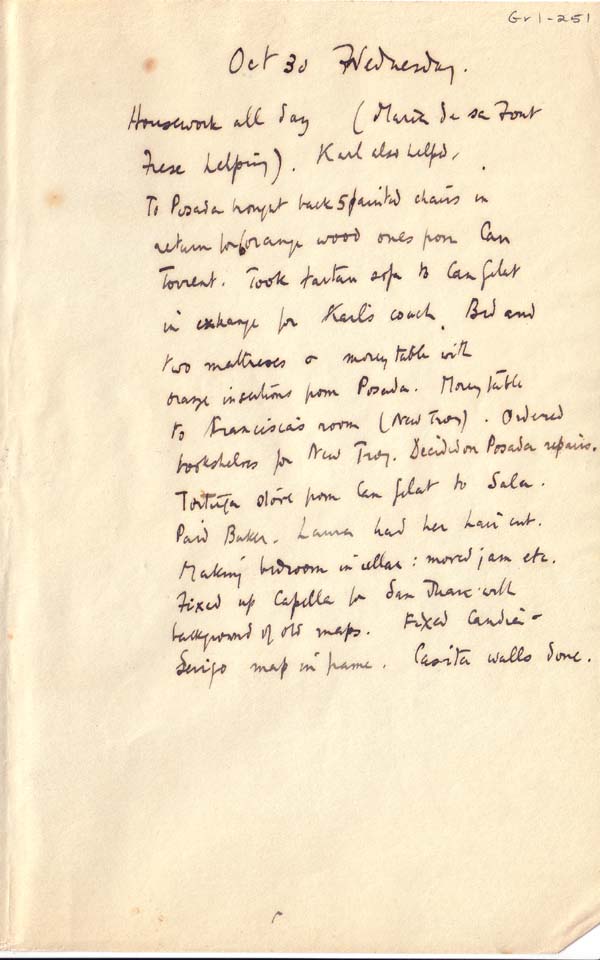 Gr1-251
Oct 30 Wednesday.
Housework all day (Maria de sa Font
Frese helping). Karl also helped.
To Posada brought back 5 painted chairs in
return for 6 orange wood ones from Can
Torrent. Took tartan sofa to Can Gelat
in exchange for Karl's couch. Bed and
two mattresses & money table with
orange insertions from Posada. Money table
to Francisca's room (New Troy). Ordered
bookshelves for New Troy. Decided on Posada repairs.
Tortuga stove from Can Gelat to Sala.
Paid Baker. Laura had her hair cut.
Making bedroom in cellar: moved jam etc.
Fixed up Capella for San Marc with
background of old maps. Fixed Candia -
Serigo map in frame. Casita walls done.